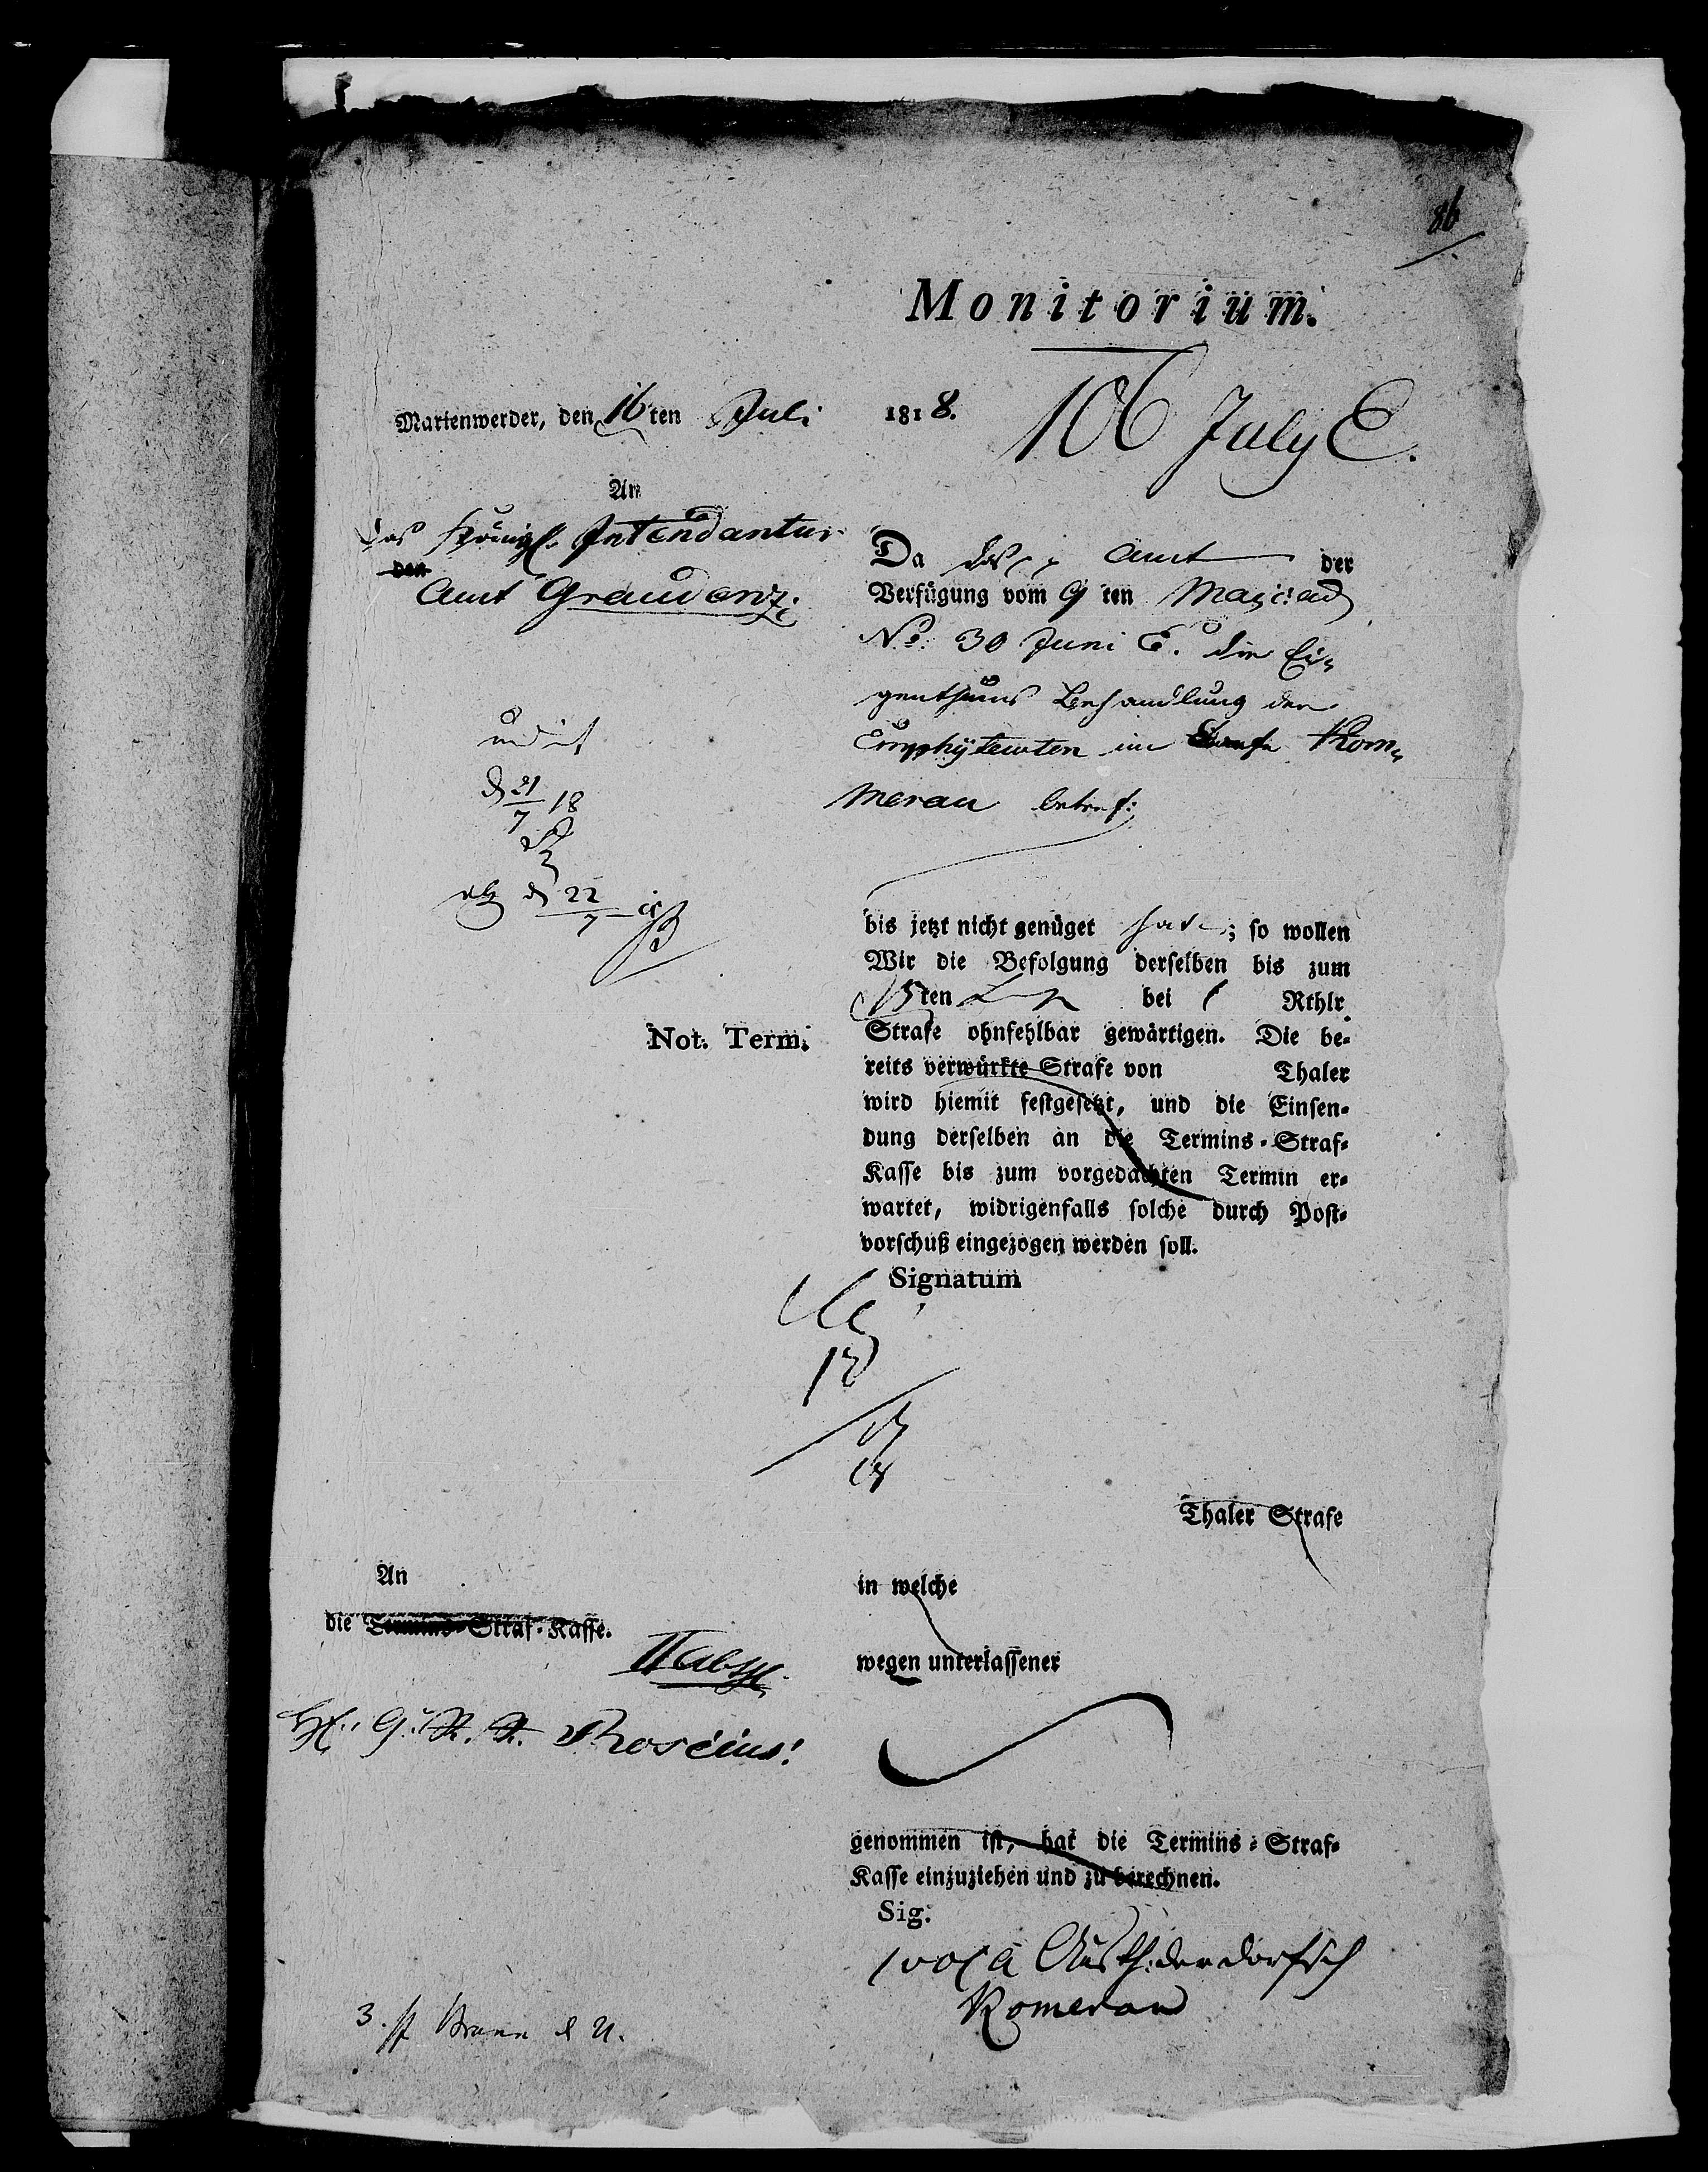 86
Monitorium.
Marienwerder, den 16 ten Juli 1818.
106 July C.
An
das Königl. Intendantur
den
Amt Graudenz.
Da das Amt der
Verfügung vom 9 ten Maj c: ad
No. 30 Juni C. die Ei-
genthums Behandlung der
Emphyteuten im Kom-
merau betref:
mdt
d 21/7 18
abg d 22/7
bis jetzt nicht genüget hat; so wollen
Wir die Befolgung derselben bis zum
15ten bei 1 Rthlr.
Not. Term.
Strafe ohnfehlbar gewärtigen. Die be-
reits verwürkte Strafe von Thaler
wird hiemit festgesetzt, und die Einsen-
dung derselben an die Termins-Straf-
Kasse bis zum vorgedachten Termin er-
wartet, widrigenfalls solche durch Post-
vorschuß eingezogen werden soll.
Signatum
Thaler Strafe
An
in welche
die Termins-Straf-Kasse.
wegen unterlassener
II Abth.
H. G. R. R. Roscius!
genommen ist, hat die Termins-Straf-
Kasse einzuziehen und zu berechnen.
Sig.
Komerau
3.